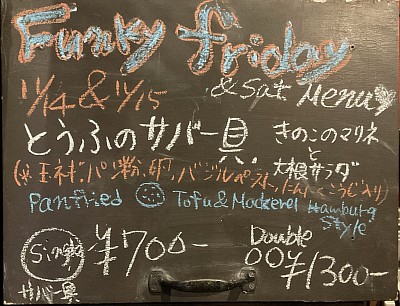 Funky friday
11/14 & 11/15 & Sat Menu
とうふのサバー具 きのこのマリネ
と
大根サラダ
(※玉ネギ、パン粉、卵、バジルペースト、にんにくこうじ入り)
Panfried Tofu & Mackerel Hamburg
Style
¥700-
Double
007 ¥1300-
サバー具